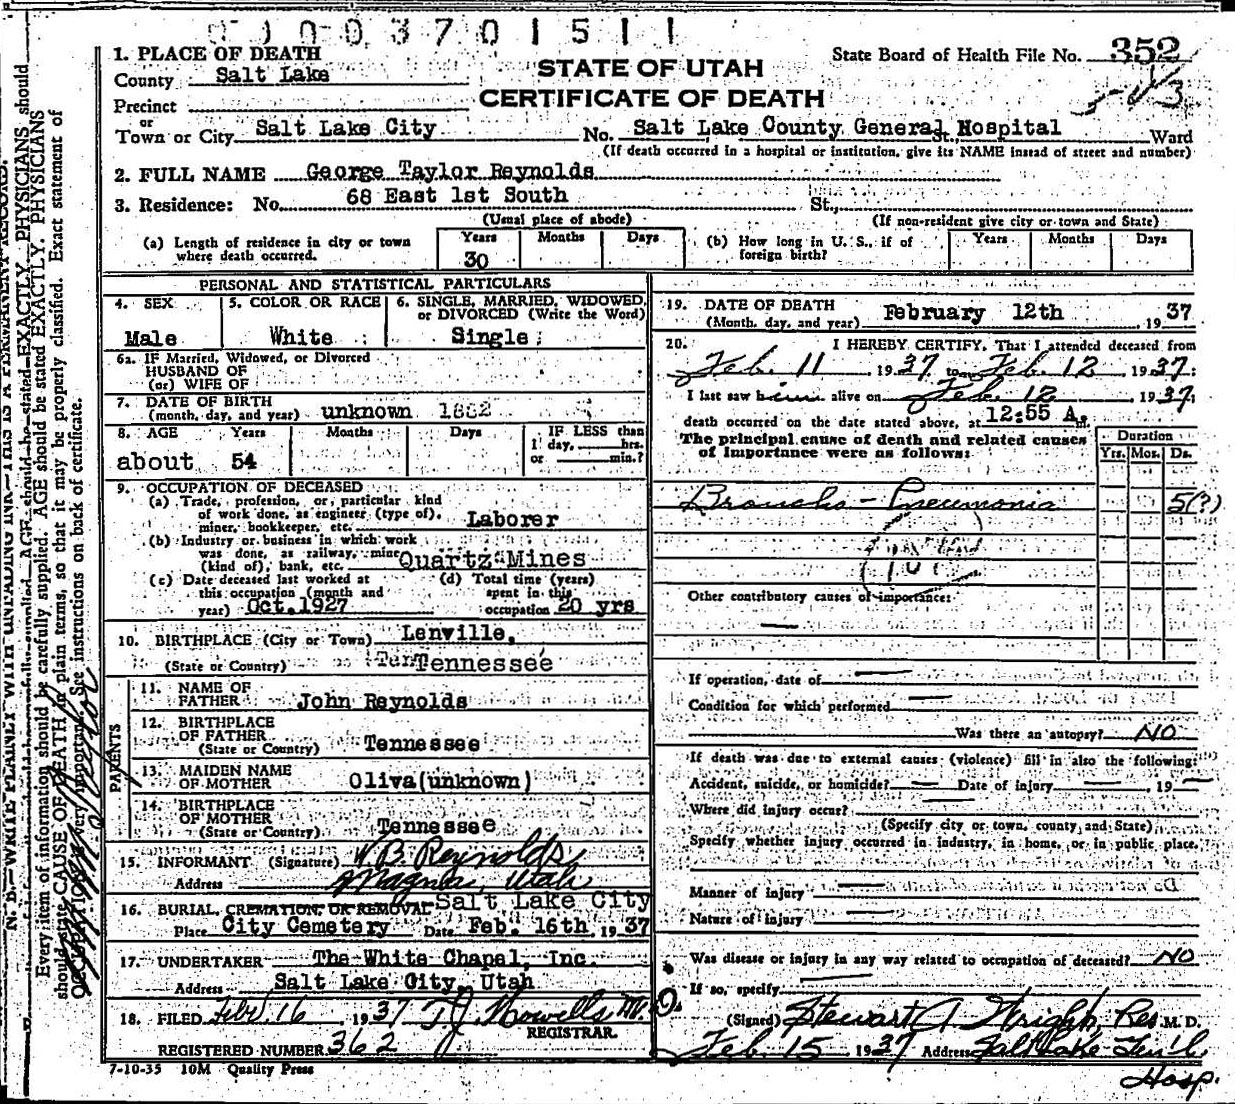 0 0 0 0 3 7 0 1 5 1 1
1. PLACE OF DEATH
County Salt Lake
Precinct
or
Town or City Salt Lake City
STATE OF UTAH
CERTIFICATE OF DEATH
State Board of Health File No. 352
No. Salt Lake County General Hospital St., Ward
(If death occurred in a hospital or institution, give its NAME instead of street and number)
2. FULL NAME George Taylor Reynolds
3. Residence: No. 68 East 1st South St.,
(Usual place of abode) (If non-resident give city or town and State)
(a) Length of residence in city or town where death occurred. Years 30 Months Days
(b) How long in U. S., if of foreign birth? Years Months Days
PERSONAL AND STATISTICAL PARTICULARS
4. SEX Male
5. COLOR OR RACE White
6. SINGLE, MARRIED, WIDOWED, or DIVORCED (Write the Word) Single
6a. IF Married, Widowed, or Divorced
HUSBAND OF
(or) WIFE OF
7. DATE OF BIRTH
(month, day, and year) unknown 1882
8. AGE Years Months Days IF LESS than
1 day, hrs.
or min.?
about 54
9. OCCUPATION OF DECEASED
(a) Trade, profession, or particular kind
of work done, as engineer (type of),
miner, bookkeeper, etc. Laborer
(b) Industry or business in which work
was done, as railway, mine
(kind of), bank, etc. Quartz Mines
(c) Date deceased last worked at
this occupation (month and
year) Oct. 1927
(d) Total time (years)
spent in this
occupation 20 yrs
10. BIRTHPLACE (City or Town) Lenville,
(State or Country) Tennessee
PARENTS
11. NAME OF
FATHER John Reynolds
12. BIRTHPLACE
OF FATHER
(State or Country) Tennessee
13. MAIDEN NAME
OF MOTHER Oliva (unknown)
14. BIRTHPLACE
OF MOTHER
(State or Country) Tennessee
15. INFORMANT (Signature) W. B. Reynolds
Address Magna, Utah
16. BURIAL, CREMATION, OR REMOVAL Salt Lake City
Place City Cemetery Date Feb. 16th, 1937
17. UNDERTAKER The White Chapel, Inc.
Address Salt Lake City, Utah
18. FILED Feb. 16 1937 T. J. Howells M.D.
REGISTRAR.
REGISTERED NUMBER 362
7-10-35 10M Quality Press
19. DATE OF DEATH
(Month, day, and year) February 12th 1937
20. I HEREBY CERTIFY, That I attended deceased from
Feb. 11 1937 to Feb. 12 1937;
I last saw him alive on Feb. 12 1937;
death occurred on the date stated above, at 12:55 A.m.
The principal cause of death and related causes
of importance were as follows:
Duration
Yrs. Mos. Ds.
Broncho-Pneumonia 5(?)
Other contributory causes of importance:
If operation, date of
Condition for which performed
Was there an autopsy? NO
If death was due to external causes (violence) fill in also the following:
Accident, suicide, or homicide? Date of injury , 19
Where did injury occur?
(Specify city or town, county, and State)
Specify whether injury occurred in industry, in home, or in public place.
Manner of injury
Nature of injury
Was disease or injury in any way related to occupation of deceased? NO
If so, specify
(Signed) Stewart A Wright, Res M. D.
Feb. 15 1937 Address Salt Lake Gen'l
Hosp.
N. B.—WRITE PLAINLY WITH UNFADING INK—THIS IS A PERMANENT RECORD.
Every item of information should be carefully supplied. AGE should be stated EXACTLY. PHYSICIANS
should state CAUSE OF DEATH in plain terms, so that it may be properly classified. Exact statement of
OCCUPATION is very important. See instructions on back of certificate.